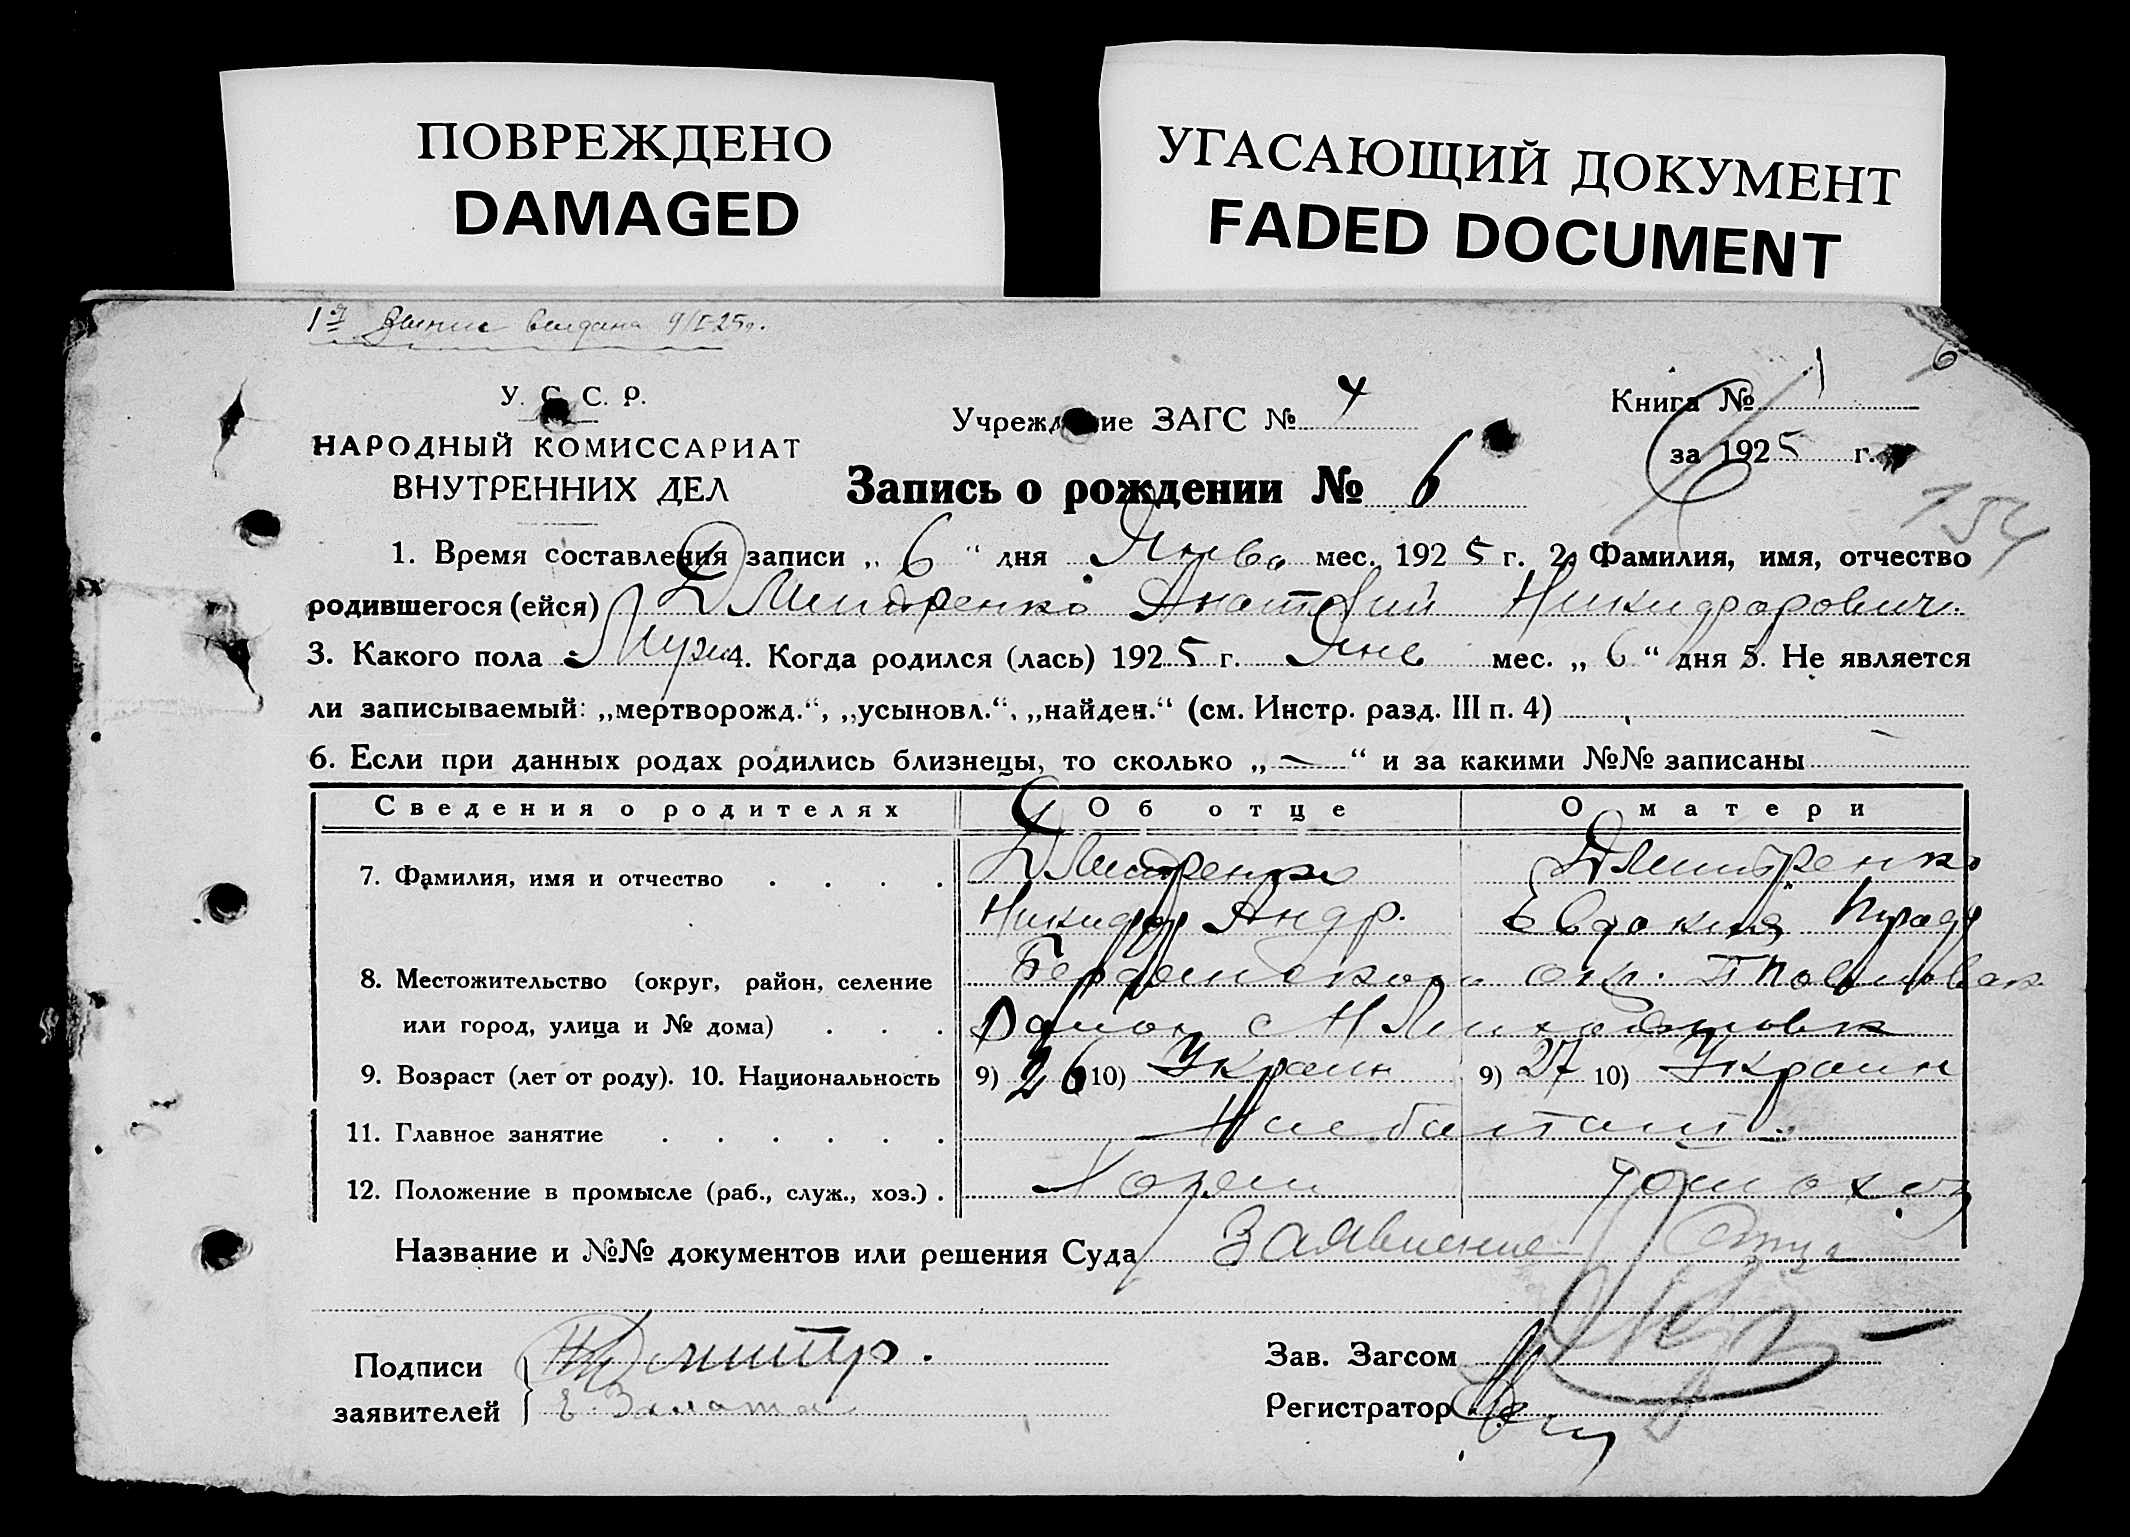 ПОВРЕЖДЕНО
DAMAGED
УГАСАЮЩИЙ ДОКУМЕНТ
FADED DOCUMENT
9/I-25г.
6
У. С. С. Р.
НАРОДНЫЙ КОМИССАРИАТ
ВНУТРЕННИХ ДЕЛ
Учреждение ЗАГС № 4
Книга № 1
за 1925 г.
Запись о рождении № 6
154
1. Время составления записи „ 6 “ дня Янва мес. 1925 г. 2. Фамилия, имя, отчество
родившегося (ейся) Дмитренко Анатолий Никидорович
3. Какого пола Муж 4. Когда родился (лась) 1925 г. Янв мес. „ 6 “ дня 5. Не является
ли записываемый: „мертворожд.“, „усыновл.“, „найден.“ (см. Инстр. разд. III п. 4)
6. Если при данных родах родились близнецы, то сколько „ — “ и за какими №№ записаны
Сведения о родителях Об отце О матери
7. Фамилия, имя и отчество Дмитренко Дмитренко
Андр. Евдокия
8. Местожительство (округ, район, селение окр.
или город, улица и № дома) Район с
9. Возраст (лет от роду). 10. Национальность 9) 26 10) Украин 9) 27 10) Украин
11. Главное занятие
12. Положение в промысле (раб., служ., хоз.) Хозяин
Название и №№ документов или решения Суда Заявление Отца
Подписи
заявителей
Дмитр.
Зав. Загсом
Регистратор